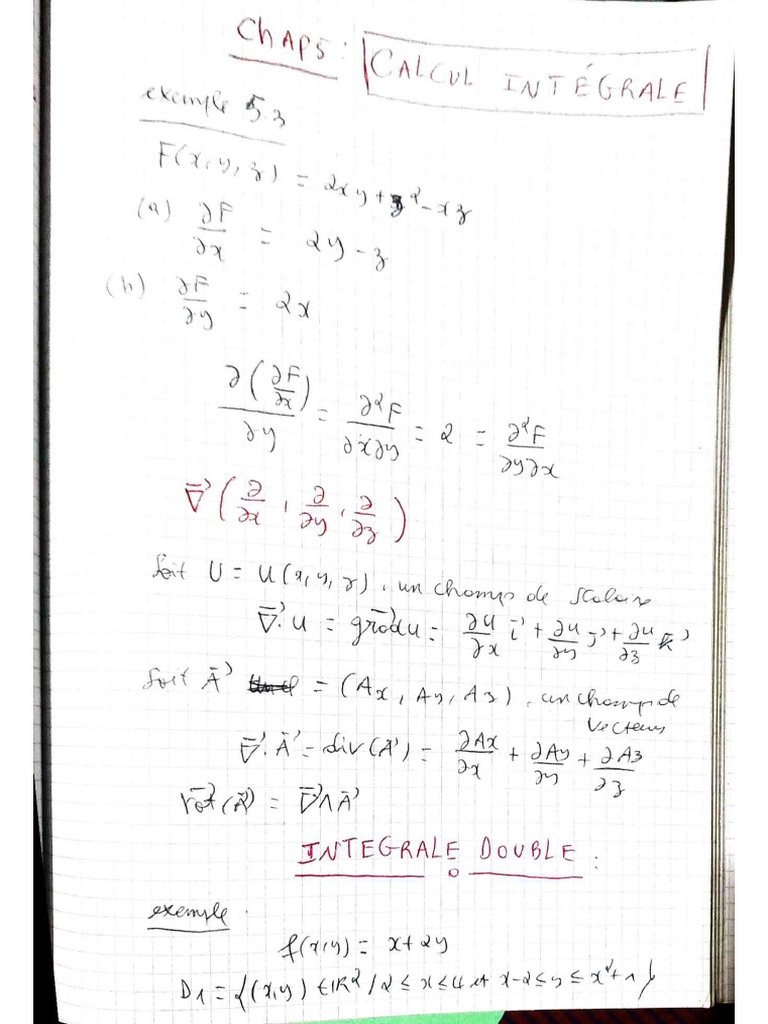 Chap5 : CALCUL INTÉGRALE
exemple 5.3
F(x,y,z) = 2xy + z² - xz
(a) ∂F/∂x = 2y - z
(b) ∂F/∂y = 2x
∂(∂F/∂x)/∂y = ∂²F/∂x∂y = 2 = ∂²F/∂y∂x
∇⃗ (∂/∂x, ∂/∂y, ∂/∂z)
Soit U = U(x,y,z), un champs de scalaire
∇⃗.u = grad⃗u = ∂u/∂x i⃗ + ∂u/∂y j⃗ + ∂u/∂z k⃗
Soit A⃗ = (Ax, Ay, Az), un champ de
vecteurs
∇⃗.A⃗ = div(A⃗) = ∂Ax/∂x + ∂Ay/∂y + ∂Az/∂z
rot⃗(A⃗) = ∇⃗∧A⃗
INTEGRALE DOUBLE :
exemple
f(x,y) = x + 2y
D1 = {(x,y) ∈ IR² / 2 ≤ x ≤ 4 et x-2 ≤ y ≤ x²+1}